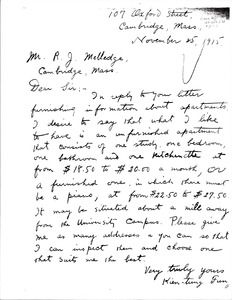 107 Oxford Street,
Cambridge, Mass.
November 25, 1915
Mr. R. J. Melledge,
Cambridge, Mass.
Dear Sir:-
In reply to your letter
furnishing information about apartments,
I desire to say that what I like
to have is an unfurnished apartment
that consists of one study, one bedroom,
one bathroom and one kitchenette at
from $18.50 to $20.00 a month, OR
a furnished one, in which there must
be a piano, at from $22.50 to $27.50.
It may be situated about a mile away
from the University Campus. Please give
me as many addresses as you can so that
I can inspect them and choose one
that suits me the best.
Very truly yours